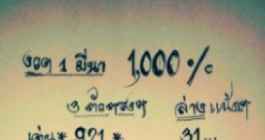 งวด 1 มีนา 1,000 %
3 ตัวตรงๆ ล่าง
921 31